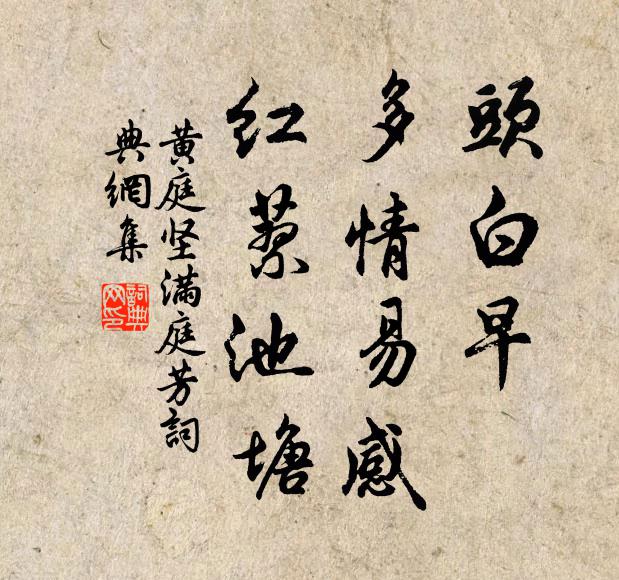 頭白早
多情易感
红蓼池塘
黄庭坚满庭芳詞
典網集
詞典
网印